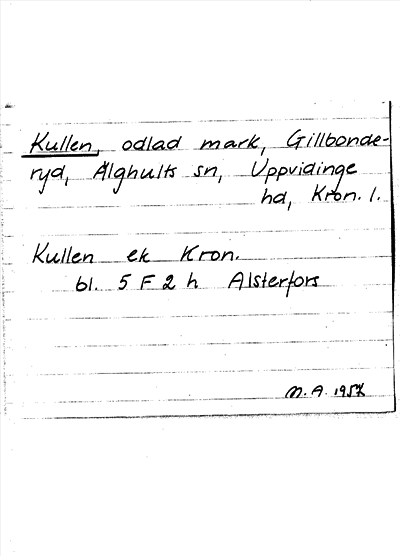 Kullen, odlad mark, Gillbonde-
ryd, Älghults sn, Uppvidinge
hd, Kron. l.
Kullen ek Kron.
bl. 5 F 2 h Alsterfors
M.A. 195